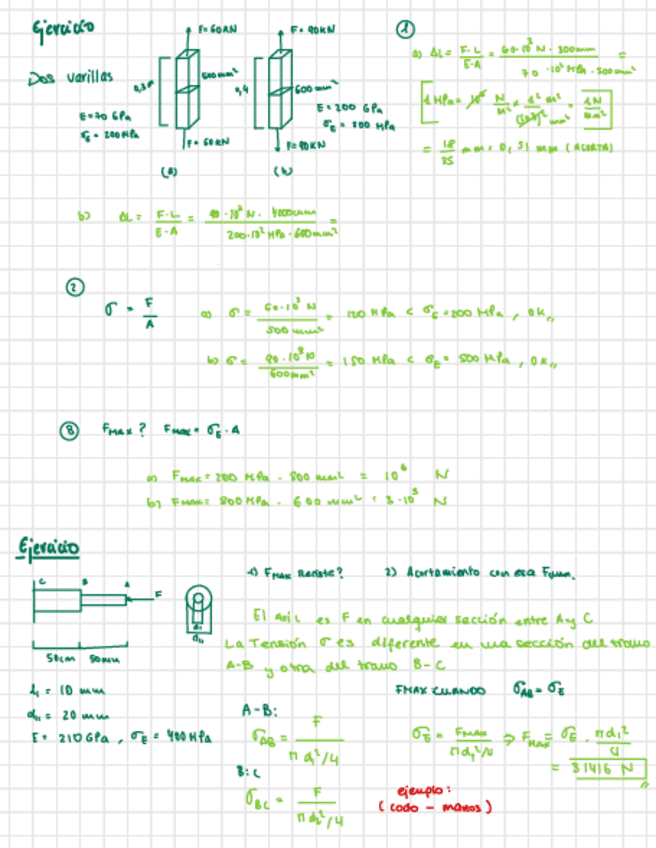 Ejercicio
Dos varillas
F=60KN
F=90KN
0,3m
500mm²
0,4
600mm²
E=70 GPa
σE = 200MPa
E=200 GPa
σE = 500 MPa
F=60KN
F=90KN
(a)
(b)
①
a) ΔL = F·L / E·A = 60·10³ N · 300mm / 70·10³ MPa · 500mm² =
1 MPa = 10⁶ N/m² × 1² m² / mm² = 1N / mm²
= 18/35 mm = 0,51 mm (ACORTA)
b) ΔL = F·L / E·A = 90·10³ N · / 200·10³ MPa · 600mm² =
②
σ = F / A
a) σ = 60·10³ N / 500 mm² = 120 MPa < σE = 200 MPa, OK,,
b) σ = 90·10³ N / 600mm² = 150 MPa < σE = 500 MPa, OK,,
③ FMAX? FMAX = σE · A
a) FMAX = 200 MPa · 500 mm² = 10⁶ N
b) FMAX = 500 MPa · 600 mm² = 3·10⁵ N
Ejercicio
C B A F
50cm 50mm
d₁ = 10 mm
d₁₁ = 20 mm
E = 210 GPa, σE = 400 MPa
1) FMAX Resiste? 2) Acortamiento con esa Fmax.
El Axil es F en cualquier sección entre A y C
La Tensión σ es diferente en una sección del tramo
A-B y otra del tramo B-C
A-B:
σAB = F / π d₁²/4
B:C
σBC = F / π d₂²/4
FMAX CUANDO σAB = σE
σE = FMAX / π d₁²/4 ⇒ FMAX = σE · π d₁² / 4
= 31416 N
ejemplo:
(codo - manos)